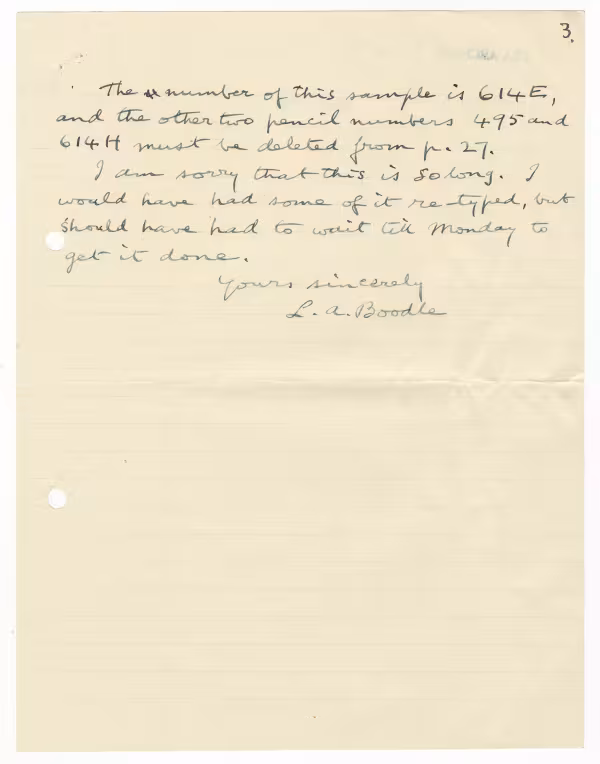 3.
The number of this sample is 614E,
and the other two pencil numbers 495 and
614H must be deleted from p. 27.
I am sorry that this is so long. I
would have had some of it re-typed, but
should have had to wait till Monday to
get it done.
Yours sincerely
L. A. Boodle